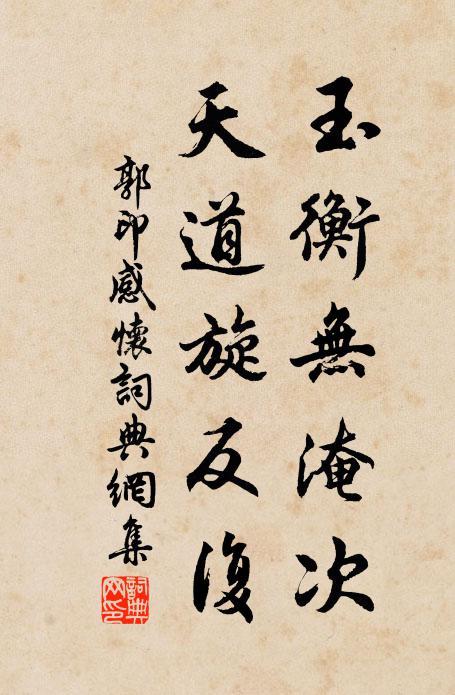 玉衡無淹次
天道旋反復
郭印感懷詞典網集
詞典网印